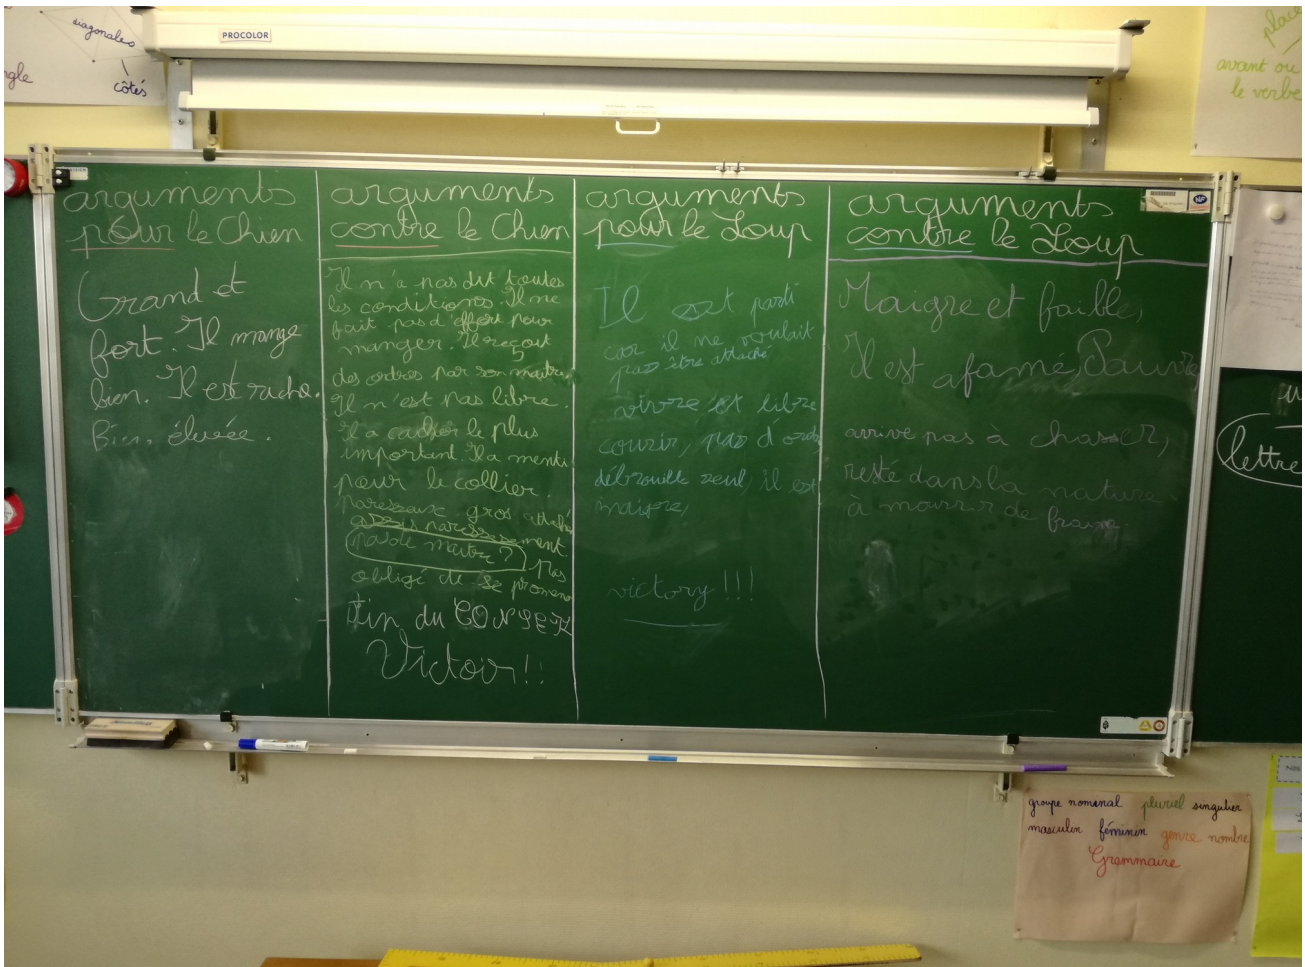 diagonales
côtés
PROCOLOR
avant ou
le verbe
arguments
pour le Chien
Grand et
fort. Il mange
bien. Il est riche.
Bien, élevée.
arguments
contre le Chien
Il n'a pas dit toutes
les conditions. Il ne
fait pas d'effort pour
manger. Il reçoit
des ordres par son maitre.
Il n'est pas libre.
Il a cacher le plus
important. Il a menti
pour le collier.
paresseux gros attaché
pas de maitre ? pas
obligé de se promener
Fin du
Victoir!!
arguments
pour le Loup
Il est parti
car il ne voulait
pas être attaché
vivre et libre
courir, pas d'
débrouille seul, il est
maigre,
victory !!!
arguments
contre le Loup
Maigre et faible,
Il est afamé, Pauvre
arrive pas à chasser,
resté dans la nature
à mourir de
NF
lettre
groupe nominal pluriel singulier
masculin féminin genre nombre
Grammaire